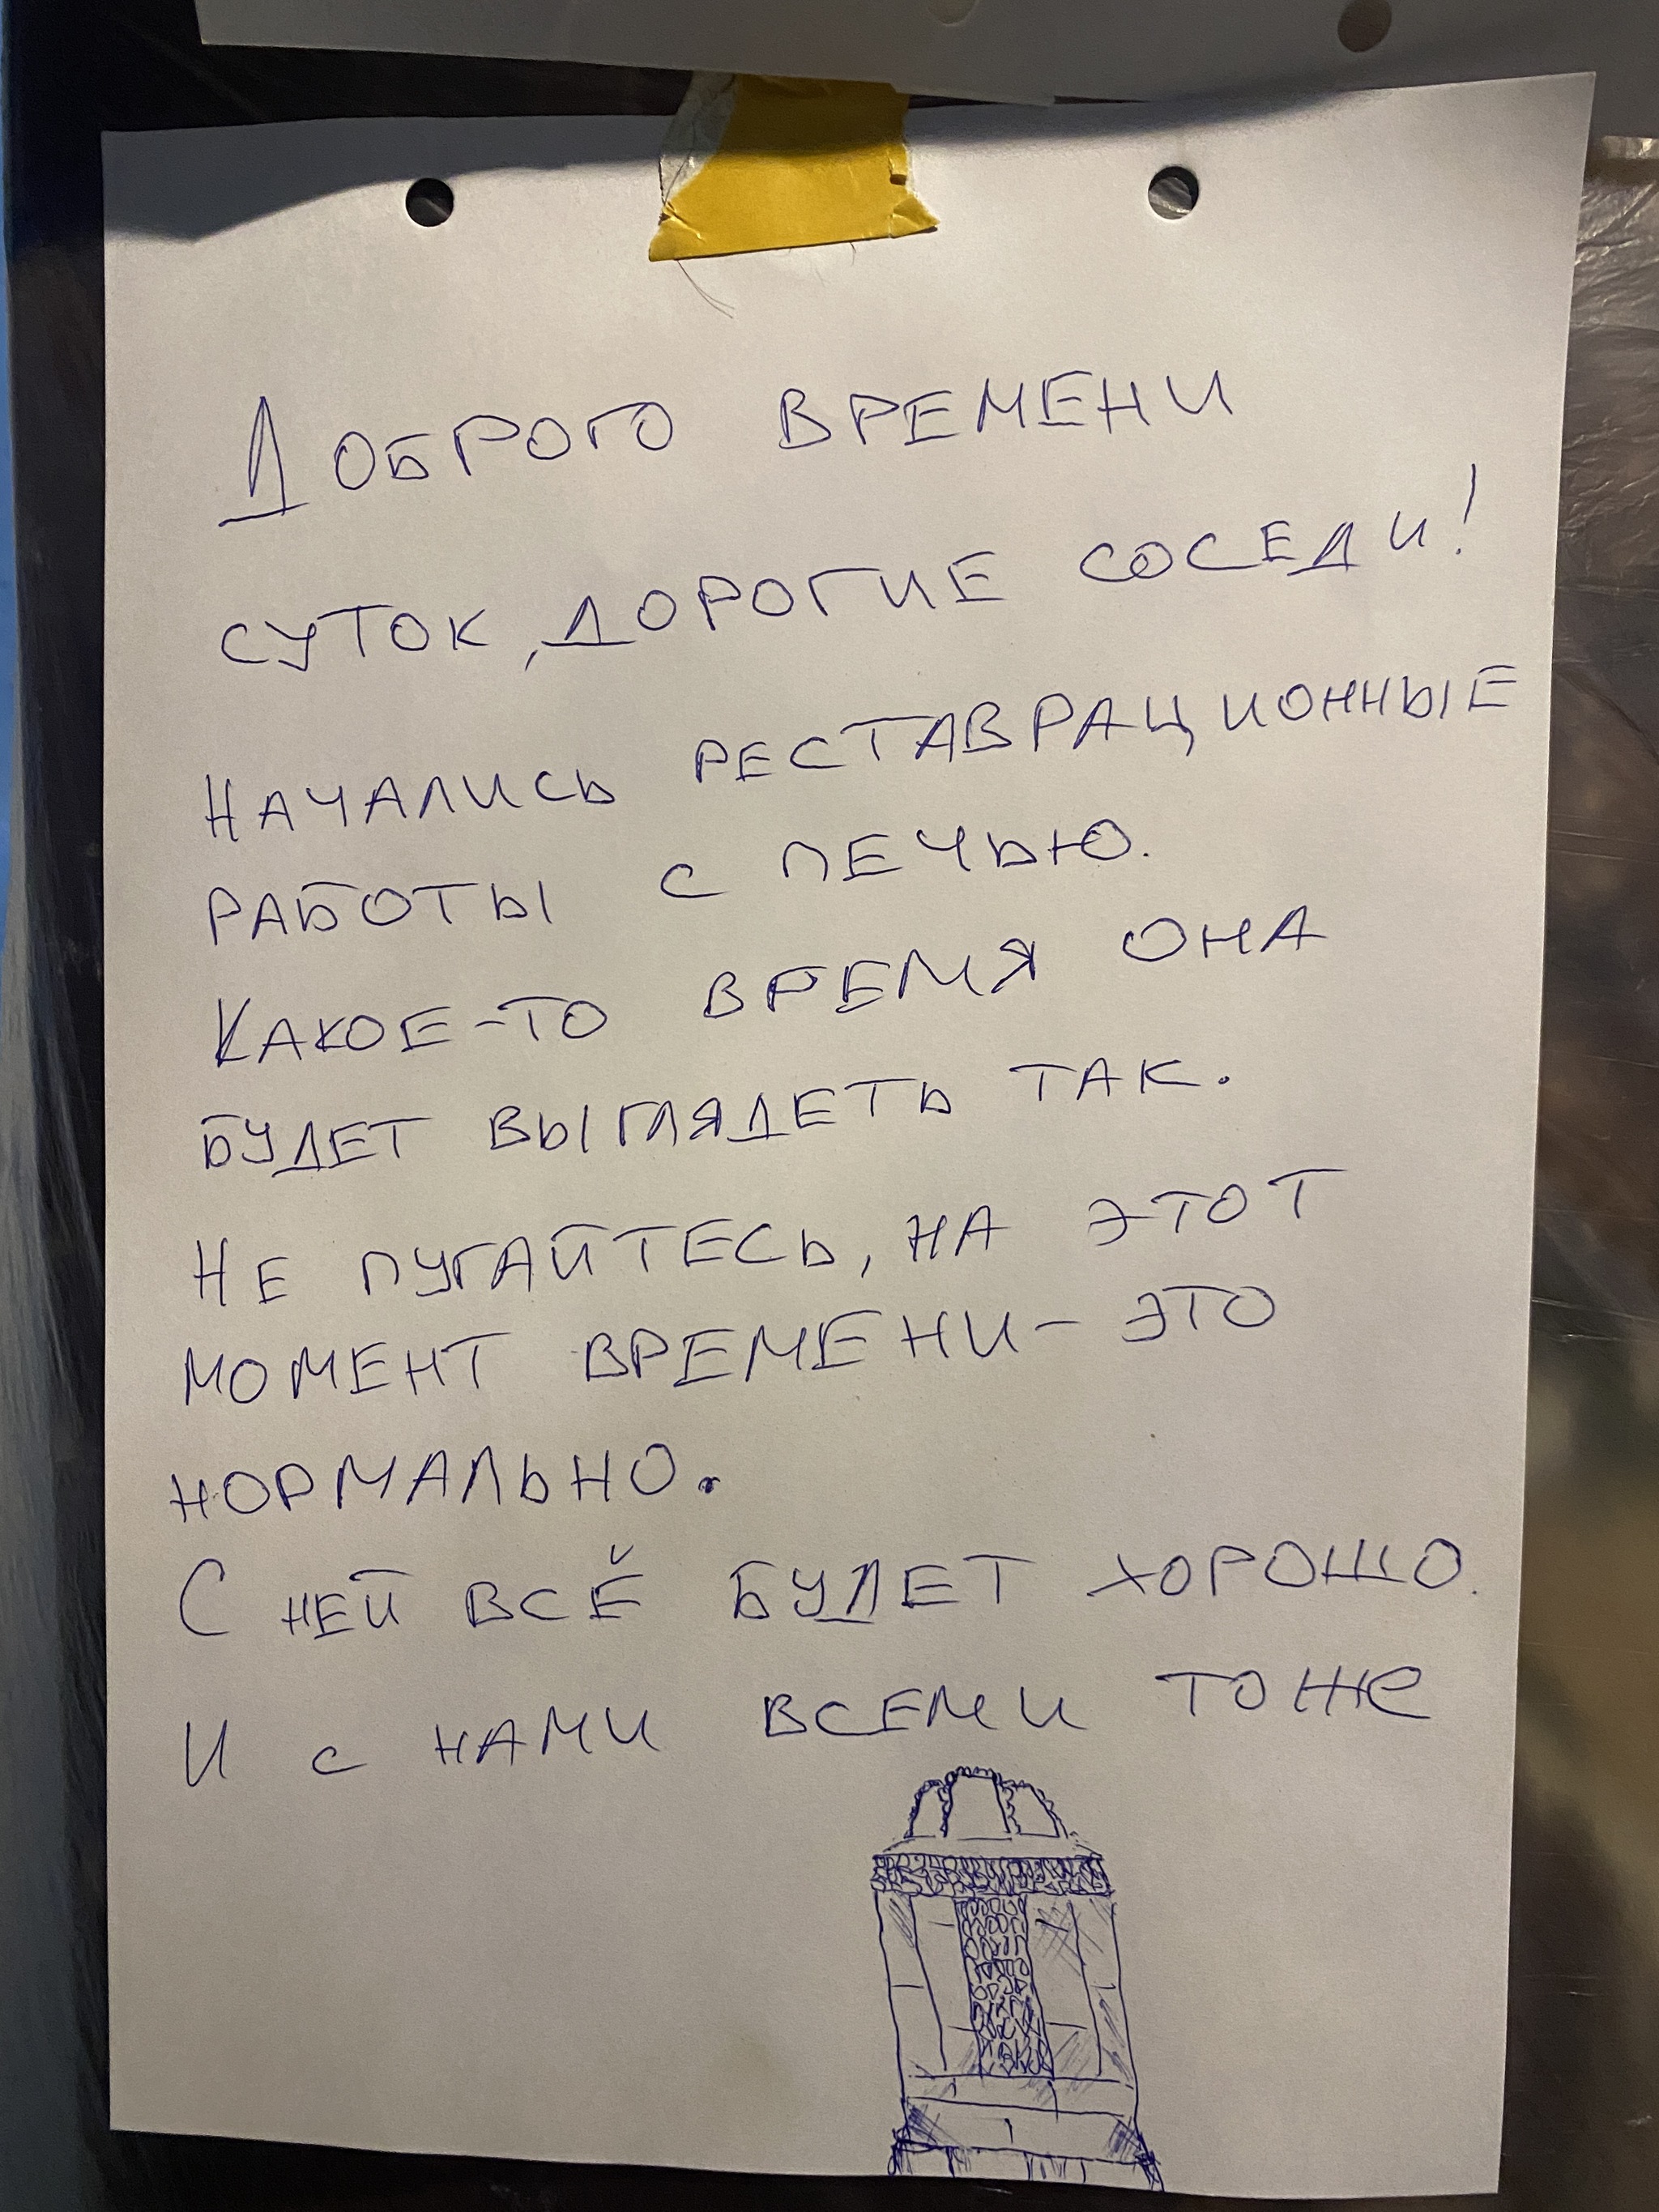 Доброго времени
суток, дорогие соседи!
Начались реставрационные
работы с печью.
Какое-то время она
будет выглядеть так.
Не пугайтесь, на этот
момент времени - это
нормально.
С ней всё будет хорошо.
И с нами всеми тоже